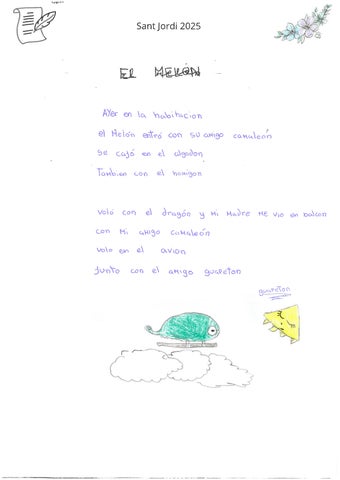 Sant Jordi 2025
EL MELÓN
Ayer en la habitacion
el Melón entró con su amigo camaleón
se cajó en el algodon
también con el hormigon
voló con el dragón y Mi Madre ME vio en balcon
con Mi amigo camaleón
volo en el avion
junto con el amigo guareton
guareton